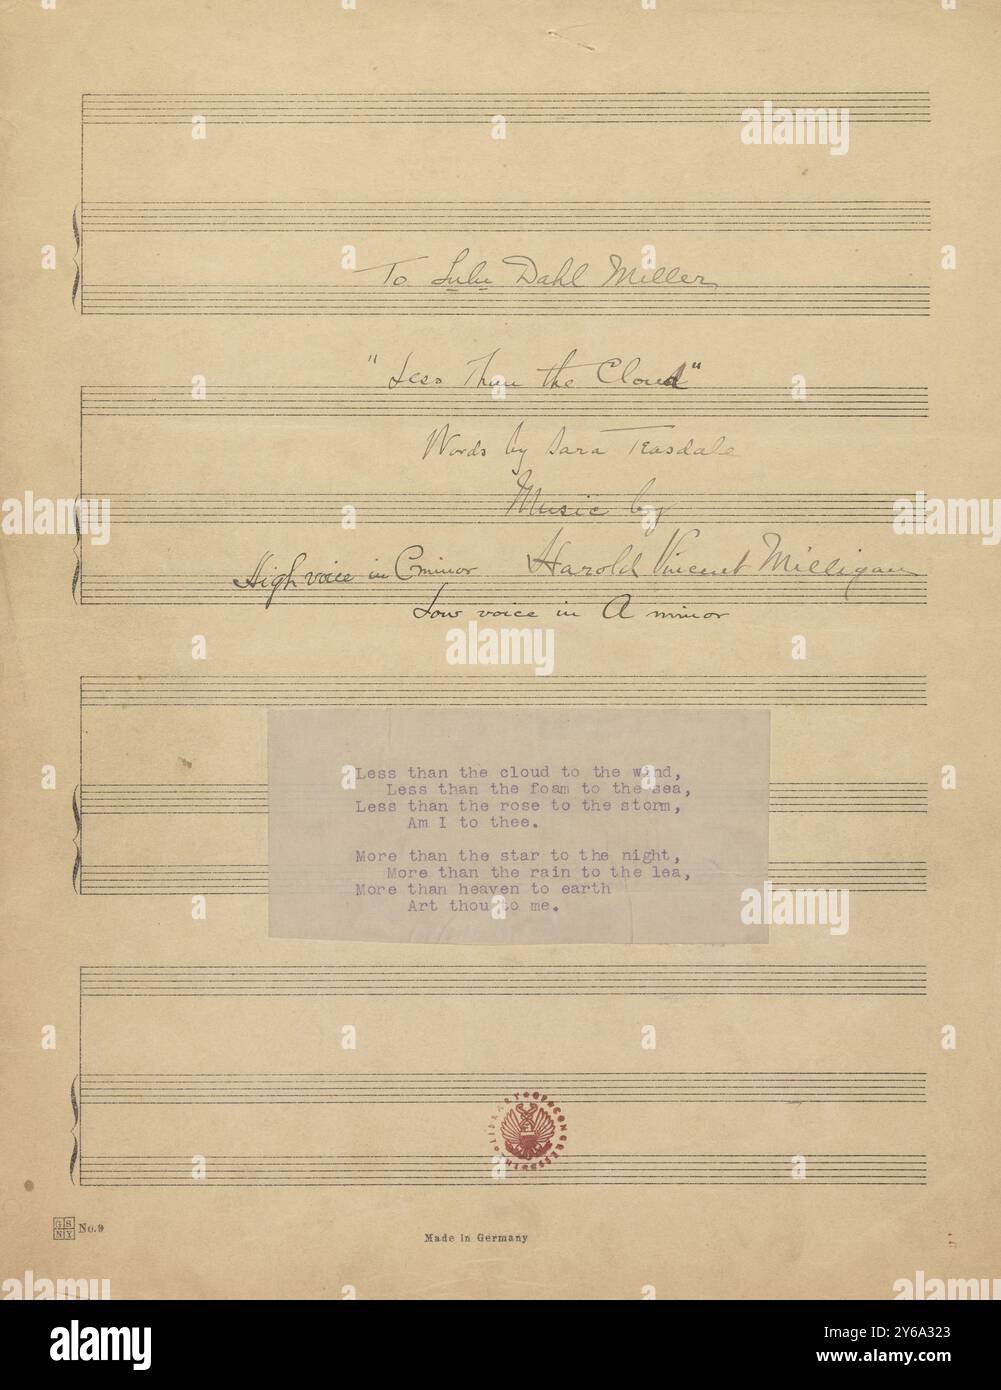 To Lulu Dahl Miller
"Less Than the Cloud"
Words by Sara Teasdale
Music by
High voice in C minor Harold Vincent Milligan
Low voice in A minor
Less than the cloud to the wind,
Less than the foam to the sea,
Less than the rose to the storm,
Am I to thee.
More than the star to the night,
More than the rain to the lea,
More than heaven to earth
Art thou to me.
THE LIBRARY OF CONGRESS
GS
NY
No. 9
Made in Germany
alamy
Image ID: 2Y6A323
www.alamy.com